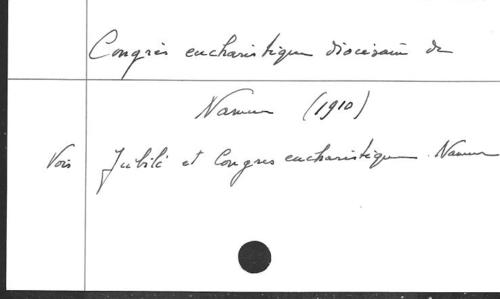 Congrès eucharistique diocésain de
Namur (1910)
Voir Jubilé et Congrès eucharistique. Namur